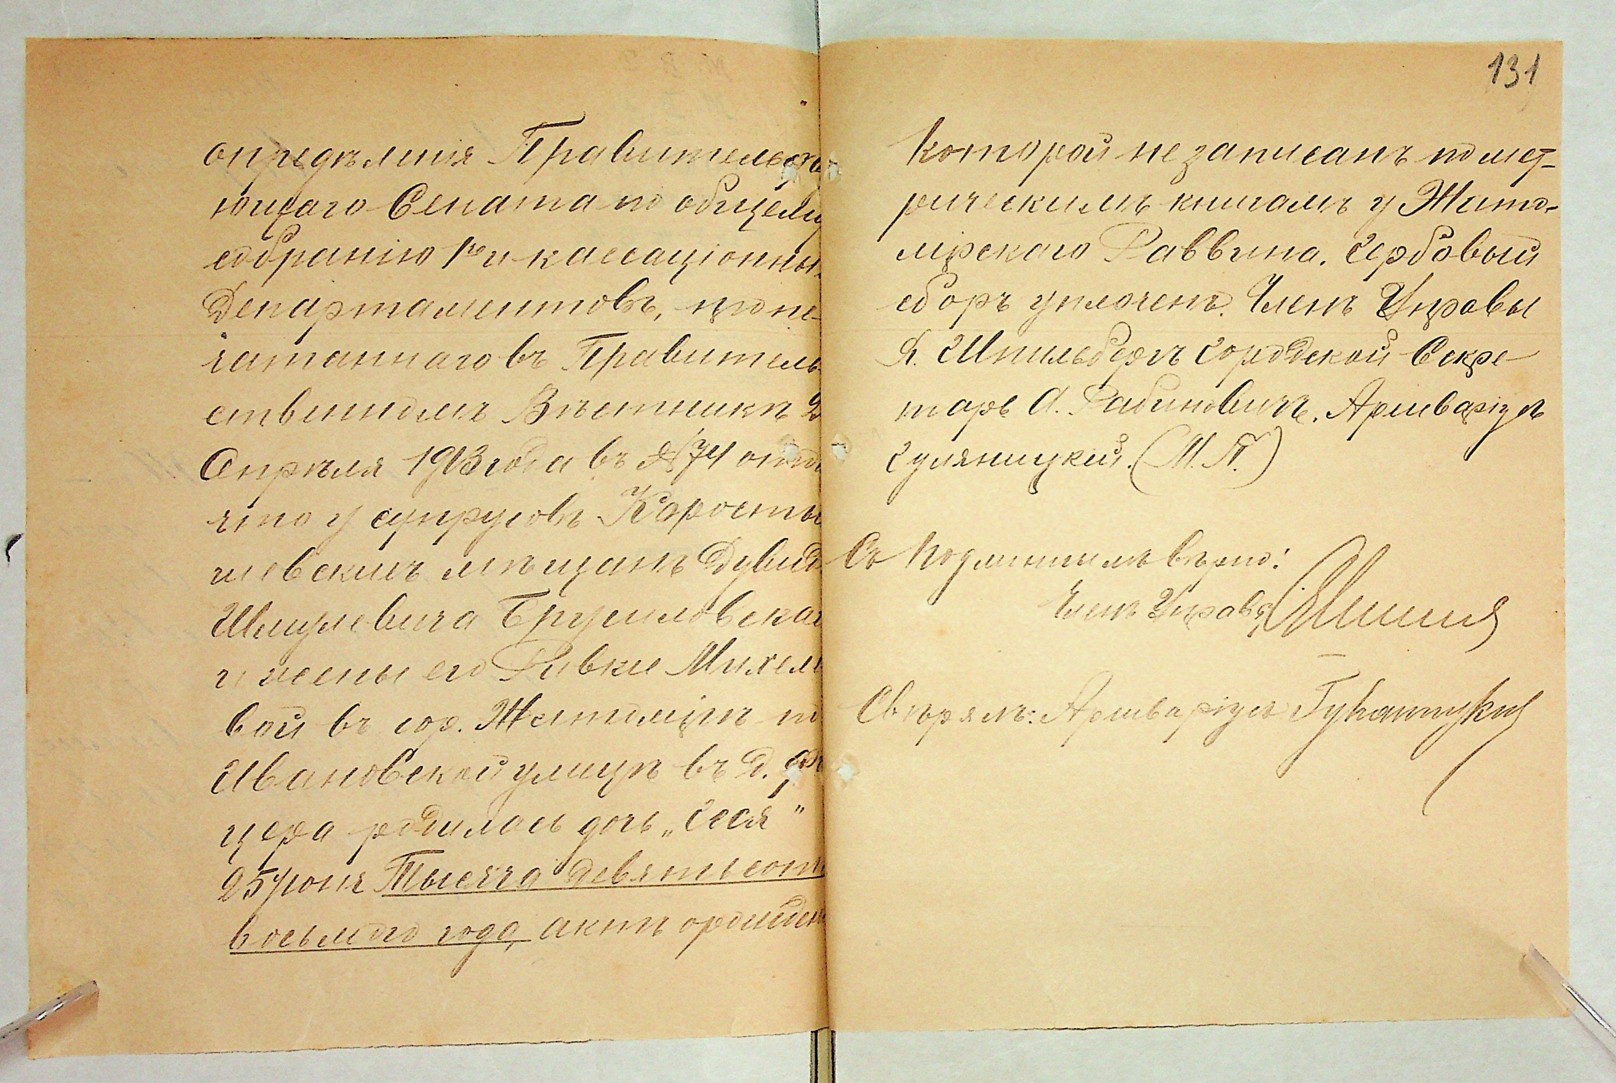 опредѣленія Правительств
ющаго Сената по общему
собранію 1го и кассаціонны
Департаментовъ, пропе-
чатаннаго въ Правитель-
ственномъ Вѣстникѣ 2
Апрѣля 1903 года въ №74
что у супруговъ Каросты
шевскихъ мѣщанъ Дувид
Шмулевича Брусиловска
и жены его Ривки Михел
вой въ гор. Житомірѣ по
Ивановской улицѣ въ д.
цера родилась дочь „Сося"
25 Іюня Тысяча девятьсот
восьмого года, актъ о рожден
131
которой не записанъ по мет-
рическимъ книгамъ у Жито-
мірскаго Раввина. Гербовый
сборъ уплоченъ. Членъ Управы
Я. Шпильбергъ Городской Секре-
тарь А. Рабиновичъ. Архиваріусъ
Гуляницкій. (М. П.)
Съ подлиннымъ вѣрно:
Членъ Управы
Свѣрялъ: Архиваріусъ Гуляницкій